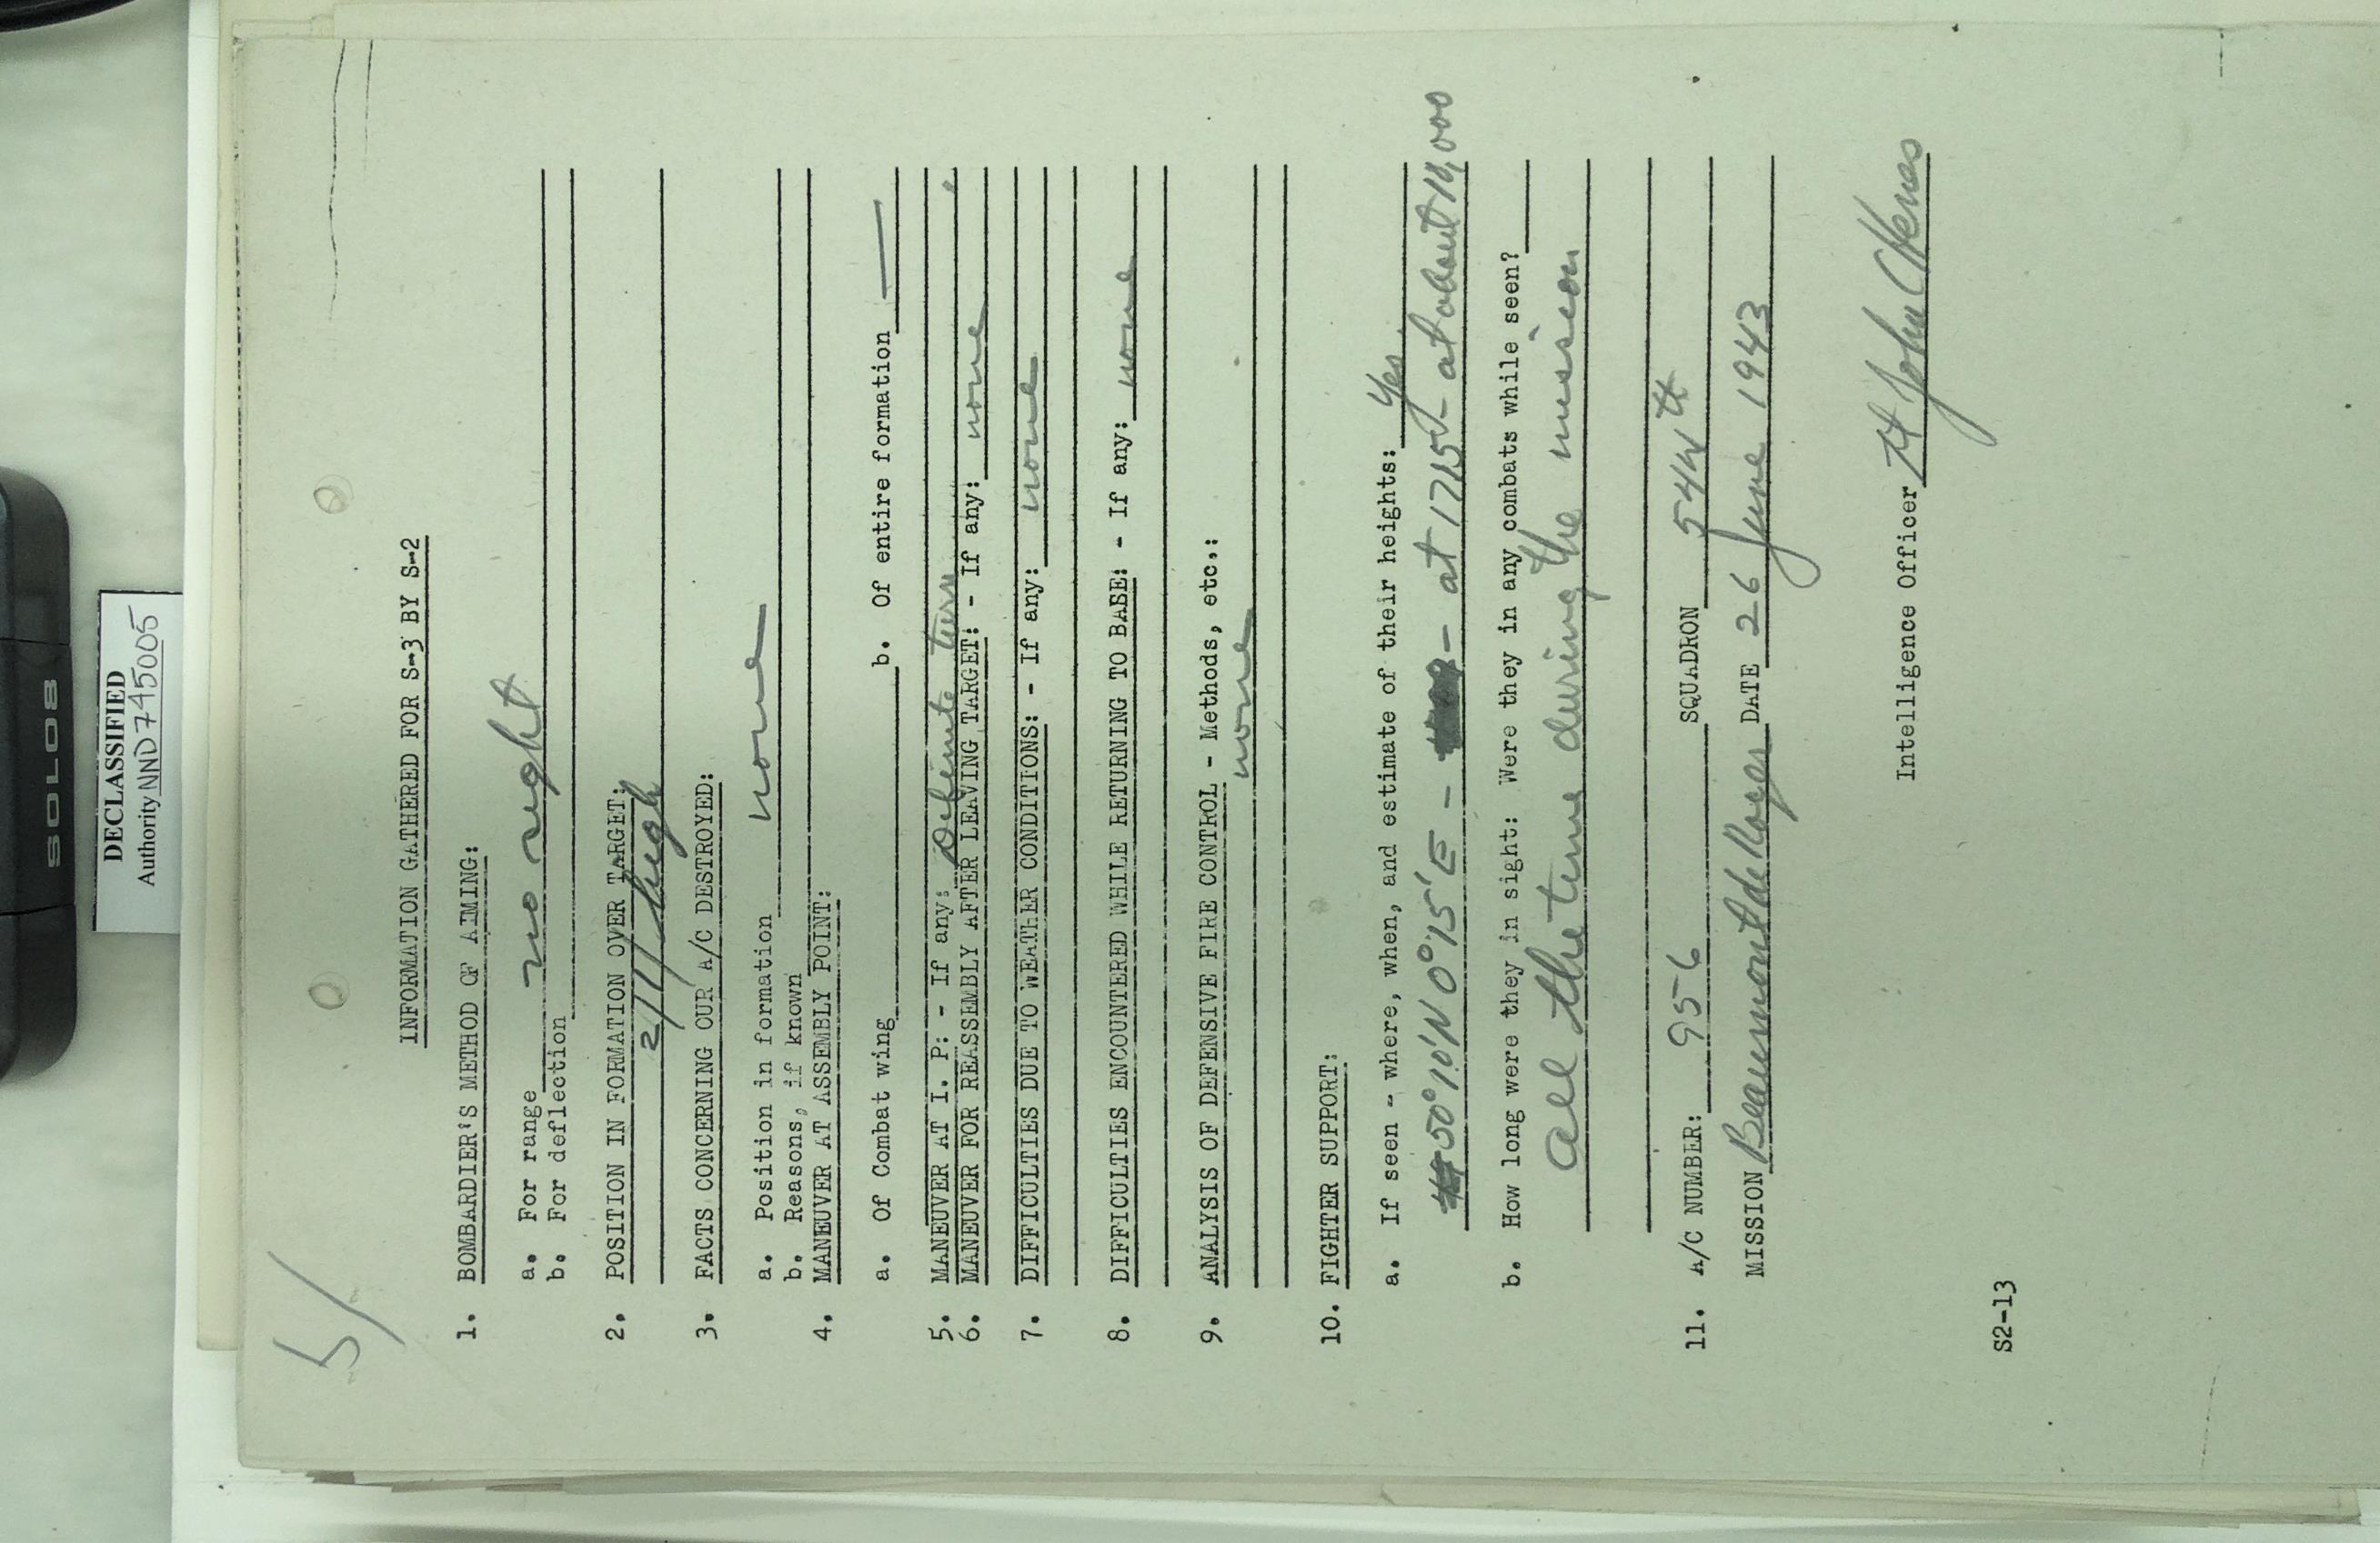 SOLO8
DECLASSIFIED
Authority NND 745005
5/
INFORMATION GATHERED FOR S-3 BY S-2
1. BOMBARDIER'S METHOD OF AIMING:
a. For range no sight
b. For deflection
2. POSITION IN FORMATION OVER TARGET:
high
3. FACTS CONCERNING OUR A/C DESTROYED:
a. Position in formation none
b. Reasons, if known
4. MANEUVER AT ASSEMBLY POINT:
a. Of Combat wing b. Of entire formation —
5. MANEUVER AT I. P: - If any: Definite turn
6. MANEUVER FOR REASSEMBLY AFTER LEAVING TARGET: - If any: none
7. DIFFICULTIES DUE TO WEATHER CONDITIONS: - If any: none
8. DIFFICULTIES ENCOUNTERED WHILE RETURNING TO BASE: - If any: none
9. ANALYSIS OF DEFENSIVE FIRE CONTROL - Methods, etc.:
none
10. FIGHTER SUPPORT:
a. If seen - where, when, and estimate of their heights: Yes.
50°10'N 0°15'E - - at 1715 - at about
b. How long were they in sight: Were they in any combats while seen?
all the time during the mission
11. A/C NUMBER: 956 SQUADRON 544th
MISSION Beaumont de Roger DATE 26 June 1943
Intelligence Officer Lt John
S2-13